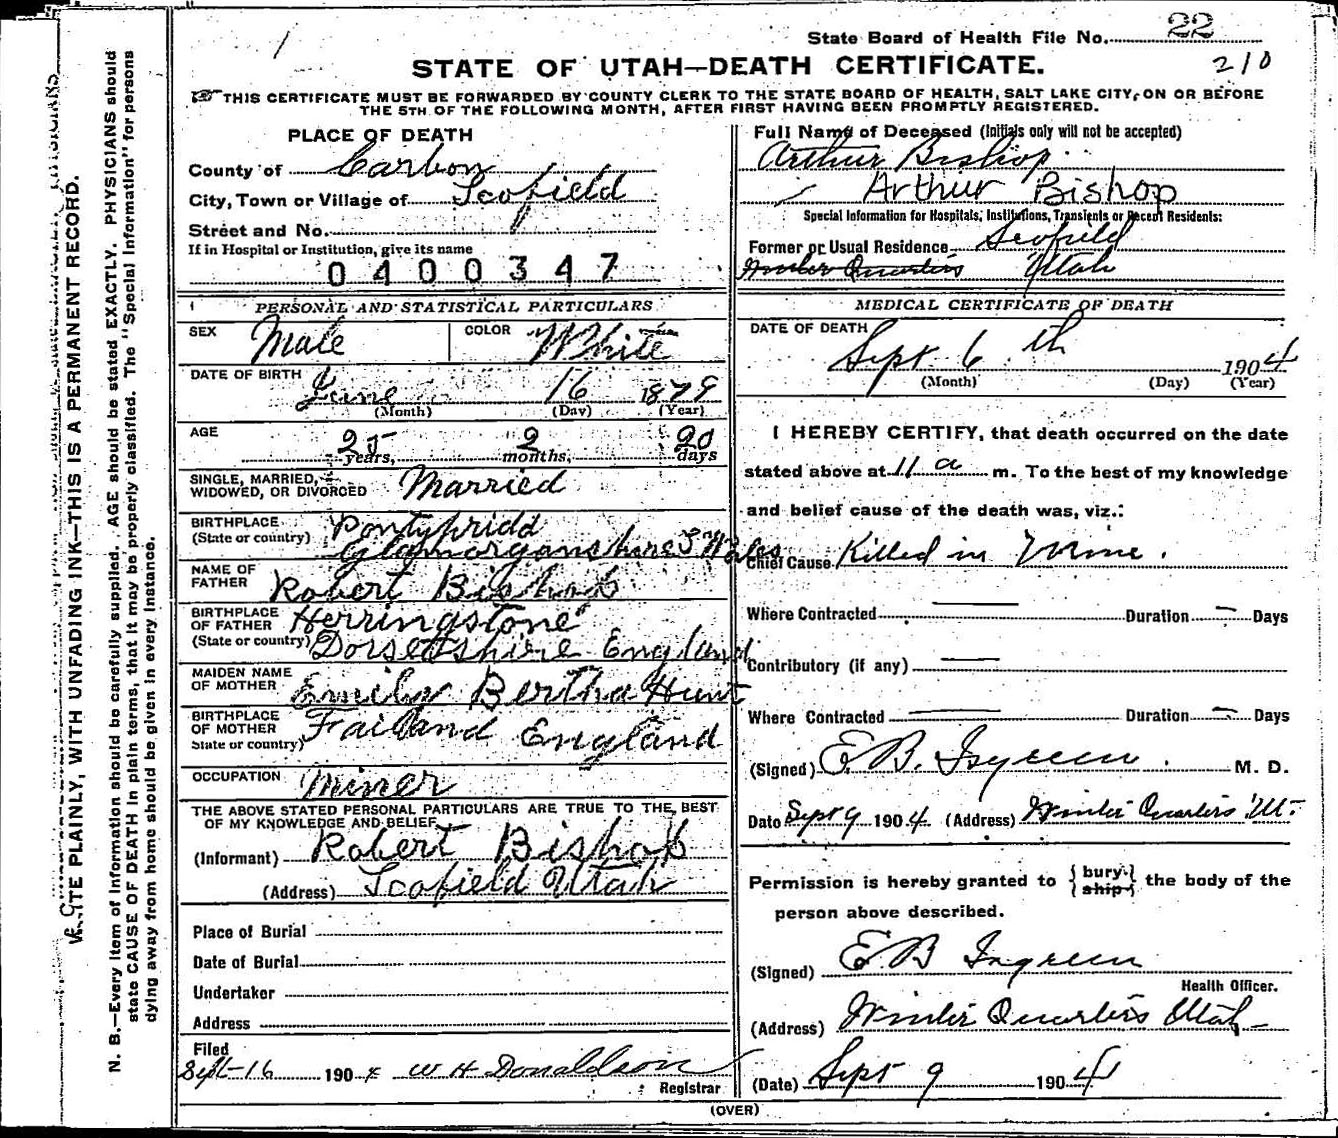 State Board of Health File No. 22
210
STATE OF UTAH—DEATH CERTIFICATE.
THIS CERTIFICATE MUST BE FORWARDED BY COUNTY CLERK TO THE STATE BOARD OF HEALTH, SALT LAKE CITY, ON OR BEFORE
THE 5TH OF THE FOLLOWING MONTH, AFTER FIRST HAVING BEEN PROMPTLY REGISTERED.
PLACE OF DEATH
County of Carbon
City, Town or Village of Scofield
Street and No.
If in Hospital or Institution, give its name
0400347
Full Name of Deceased (Initials only will not be accepted)
Arthur Bishop
Arthur Bishop
Special Information for Hospitals, Institutions, Transients or Recent Residents:
Former or Usual Residence Scofield
Winter Quarters Utah
PERSONAL AND STATISTICAL PARTICULARS
SEX Male COLOR White
DATE OF BIRTH June 16 1879
(Month) (Day) (Year)
AGE 25 years, 2 months, 20 days
SINGLE, MARRIED,
WIDOWED, OR DIVORCED Married
BIRTHPLACE Pontypridd
(State or country) Glamorganshire S Wales
NAME OF
FATHER Robert Bishop
BIRTHPLACE
OF FATHER Herringstone
(State or country) Dorsetshire England
MAIDEN NAME
OF MOTHER Emily Bertha Hunt
BIRTHPLACE
OF MOTHER Failand England
State or country)
OCCUPATION Miner
THE ABOVE STATED PERSONAL PARTICULARS ARE TRUE TO THE BEST
OF MY KNOWLEDGE AND BELIEF
(Informant) Robert Bishop
(Address) Scofield Utah
Place of Burial
Date of Burial
Undertaker
Address
Filed
Sept 16 1904 W H Donaldson
Registrar
MEDICAL CERTIFICATE OF DEATH
DATE OF DEATH
Sept 6th 1904
(Month) (Day) (Year)
I HEREBY CERTIFY, that death occurred on the date
stated above at 11 a m. To the best of my knowledge
and belief cause of the death was, viz.:
Chief Cause Killed in Mine.
Where Contracted — Duration — Days
Contributory (if any) —
Where Contracted — Duration — Days
(Signed) E. B. Isgreen. M. D.
Date Sept 9 1904 (Address) Winter Quarters Ut.
Permission is hereby granted to {bury} {ship} the body of the
person above described.
(Signed) E B Isgreen
Health Officer.
(Address) Winter Quarters Utah
(Date) Sept 9 1904
(OVER)
WRITE PLAINLY, WITH UNFADING INK—THIS IS A PERMANENT RECORD.
N. B.—Every item of information should be carefully supplied. AGE should be stated EXACTLY. PHYSICIANS should
state CAUSE OF DEATH in plain terms, that it may be properly classified. The "Special Information" for persons
dying away from home should be given in every instance.